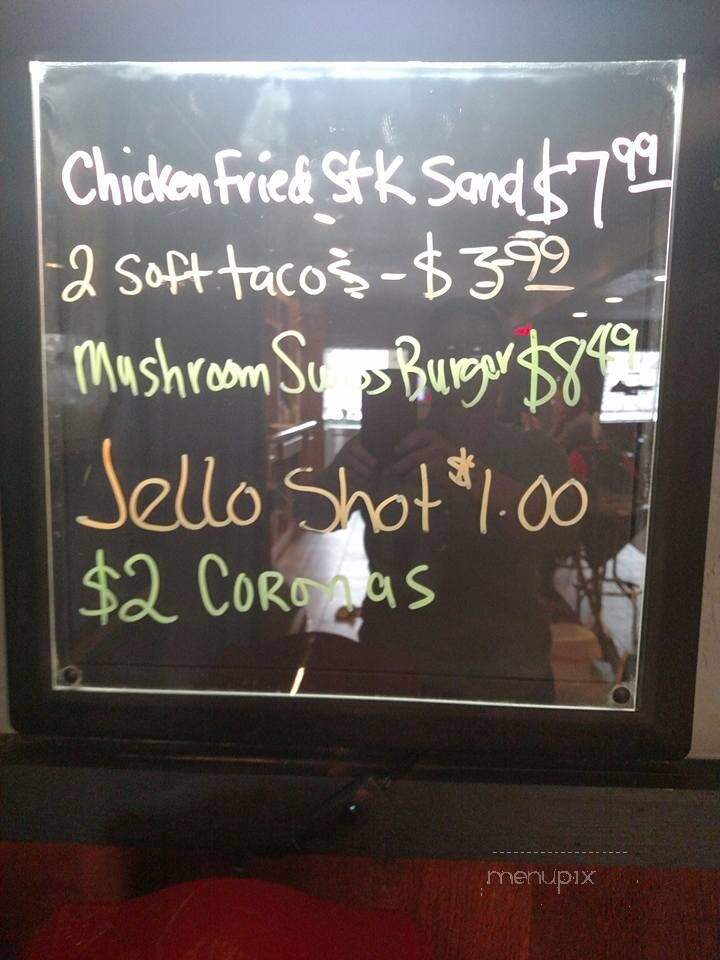 Chicken Fried StK Sand $7.99
2 Soft tacos - $3.99
Mushroom Swiss Burger $8.49
Jello Shot $1.00
$2 CORONAS
menupix